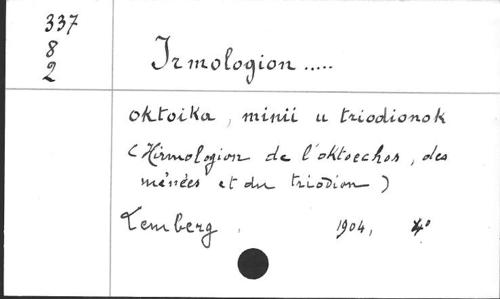 337
8
2
Irmologion .....
oktoika, minii u triodionok
(Hirmologion de l'oktoechos, des
ménées et du triodion)
Lemberg, 1904, 4°